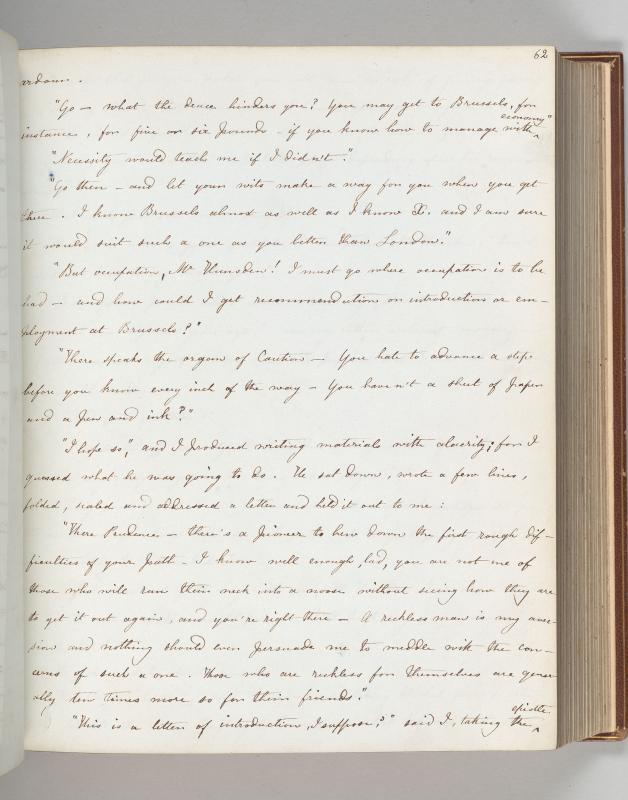 62
ardour.
"Go – what the deuce hinders you? You may get to Brussels, for
economy"
instance, for five or six pounds – if you know how to manage with
"Necessity would teach me if I didn't".
"Go then – and let your wits make a way for you when you get
there. I know Brussels almost as well as I know X. and I am sure
it would suit such a one as you better than London."
"But occupation, Mr Hunsden! I must go where occupation is to be
had – and how could I get recommendation or introduction or em-
ployment at Brussels?"
"There speaks the organ of Caution – You hate to advance a step
before you know every inch of the way – You haven't a sheet of paper
and a pen and ink?"
"I hope so", and I produced writing materials with alacrity; for I
guessed what he was going to do. He sat down, wrote a few lines,
folded, sealed and addressed a letter and held it out to me:
"There Prudence – there's a pioneer to hew down the first rough dif-
ficulties of your path – I know well enough, lad, you are not one of
those who will run their neck into a noose without seeing how they are
to get it out again, and you're right there – A reckless man is my aver-
sion and nothing should ever persuade me to meddle with the con-
cerns of such a one. Those who are reckless for themselves are gener-
ally ten times more so for their friends".
epistle
"This is a letter of introduction, I suppose?" said I, taking the